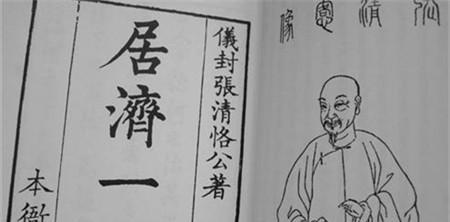 張清愙像
儀封張清恪公著
居濟一
本衙